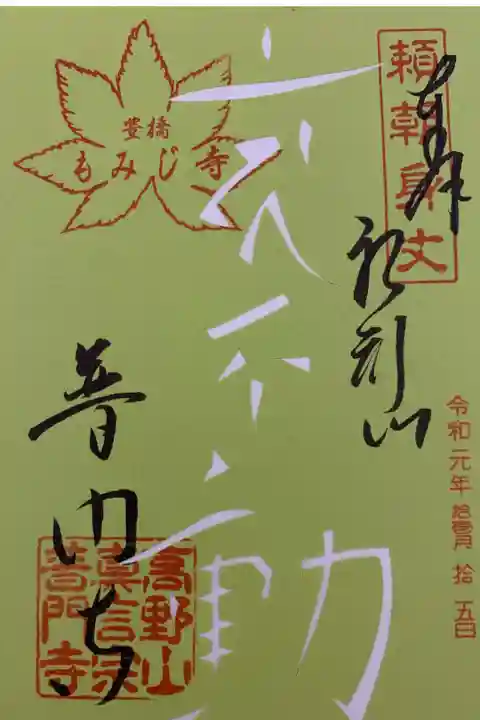 頼朝身丈
奉拝
船形山
令和元年拾壹月拾五日
不動
豊橋
もみじ寺
普門寺
高野山
真言宗
普門寺